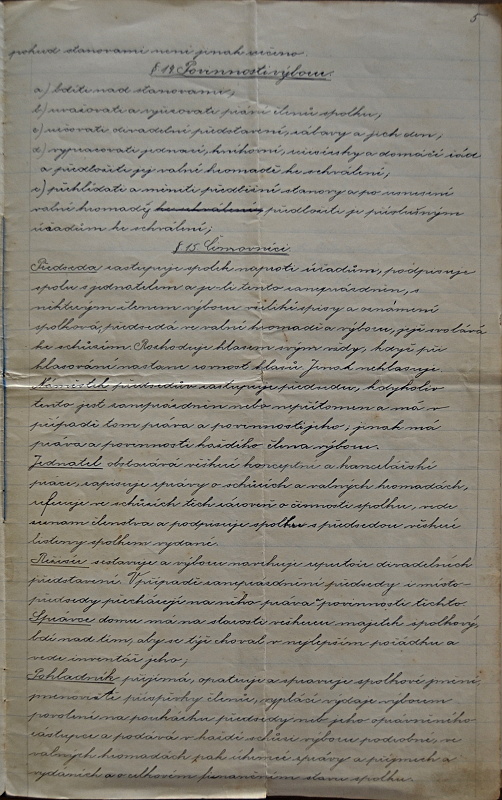 5
pokud stanovami není jinak určeno.
§ 14. Povinnosti výboru.
a) bdíti nad stanovami;
b) uvažovati a vyřizovati přání členů spolku;
c) určovati divadelní představení, zábavy a jich den;
d) vypracovati jednací, knihovní, and domácí řád
a předložiti jej valné hromadě ke schválení;
e) přehlížeti a měniti předešlé stanovy a po usnesení
valné hromady ke schválení předložiti je příslušným
úřadům ke schválení;
§ 15. Činovníci.
Předseda zastupuje spolek naproti úřadům, podpisuje
spolu s jednatelem a je-li tento zaneprázdněn, s
některým členem výboru veškeré spisy a oznámení
spolková, předsedá ve valné hromadě a výboru, jejž svolává
ke schůzím. Rozhoduje hlasem svým vždy, když při
hlasování nastane rovnost hlasů. Jinak nehlasuje.
Náměstek předsedův zastupuje předsedu, kdykoliv
tento jest zaneprázdněn nebo nepřítomen a má v
případě tom práva a povinnosti jeho, jinak má
práva a povinnosti každého člena výboru.
Jednatel obstarává veškeré konceptní a kancelářské
práce, zapisuje zprávy o schůzích a valných hromadách,
referuje ve schůzích těch zároveň o činnosti spolku, vede
seznam členstva a podpisuje spolu s předsedou veškeré
listiny spolkem vydané.
Režisér sestavuje a výboru navrhuje repertoir divadelních
představení. V případě zaneprázdnění předsedy i místo-
předsedy přecházejí na něho práva i povinnosti těchto.
Správce domu má na starosti veškeren majetek spolkový,
bdí nad tím, aby se týž choval v nejlepším pořádku a
vede inventář jeho;
Pokladník přijímá, opatruje a spravuje spolkové peníze,
jmenovitě příspěvky členů, vyplácí výdaje výborem
povolené na poukázku předsedy neb jeho oprávněného
zástupce a podává v každé schůzi výboru podrobné, ve
valných hromadách pak úhrnné zprávy o příjmech a
vydáních a o celkovém finančním stavu spolku.